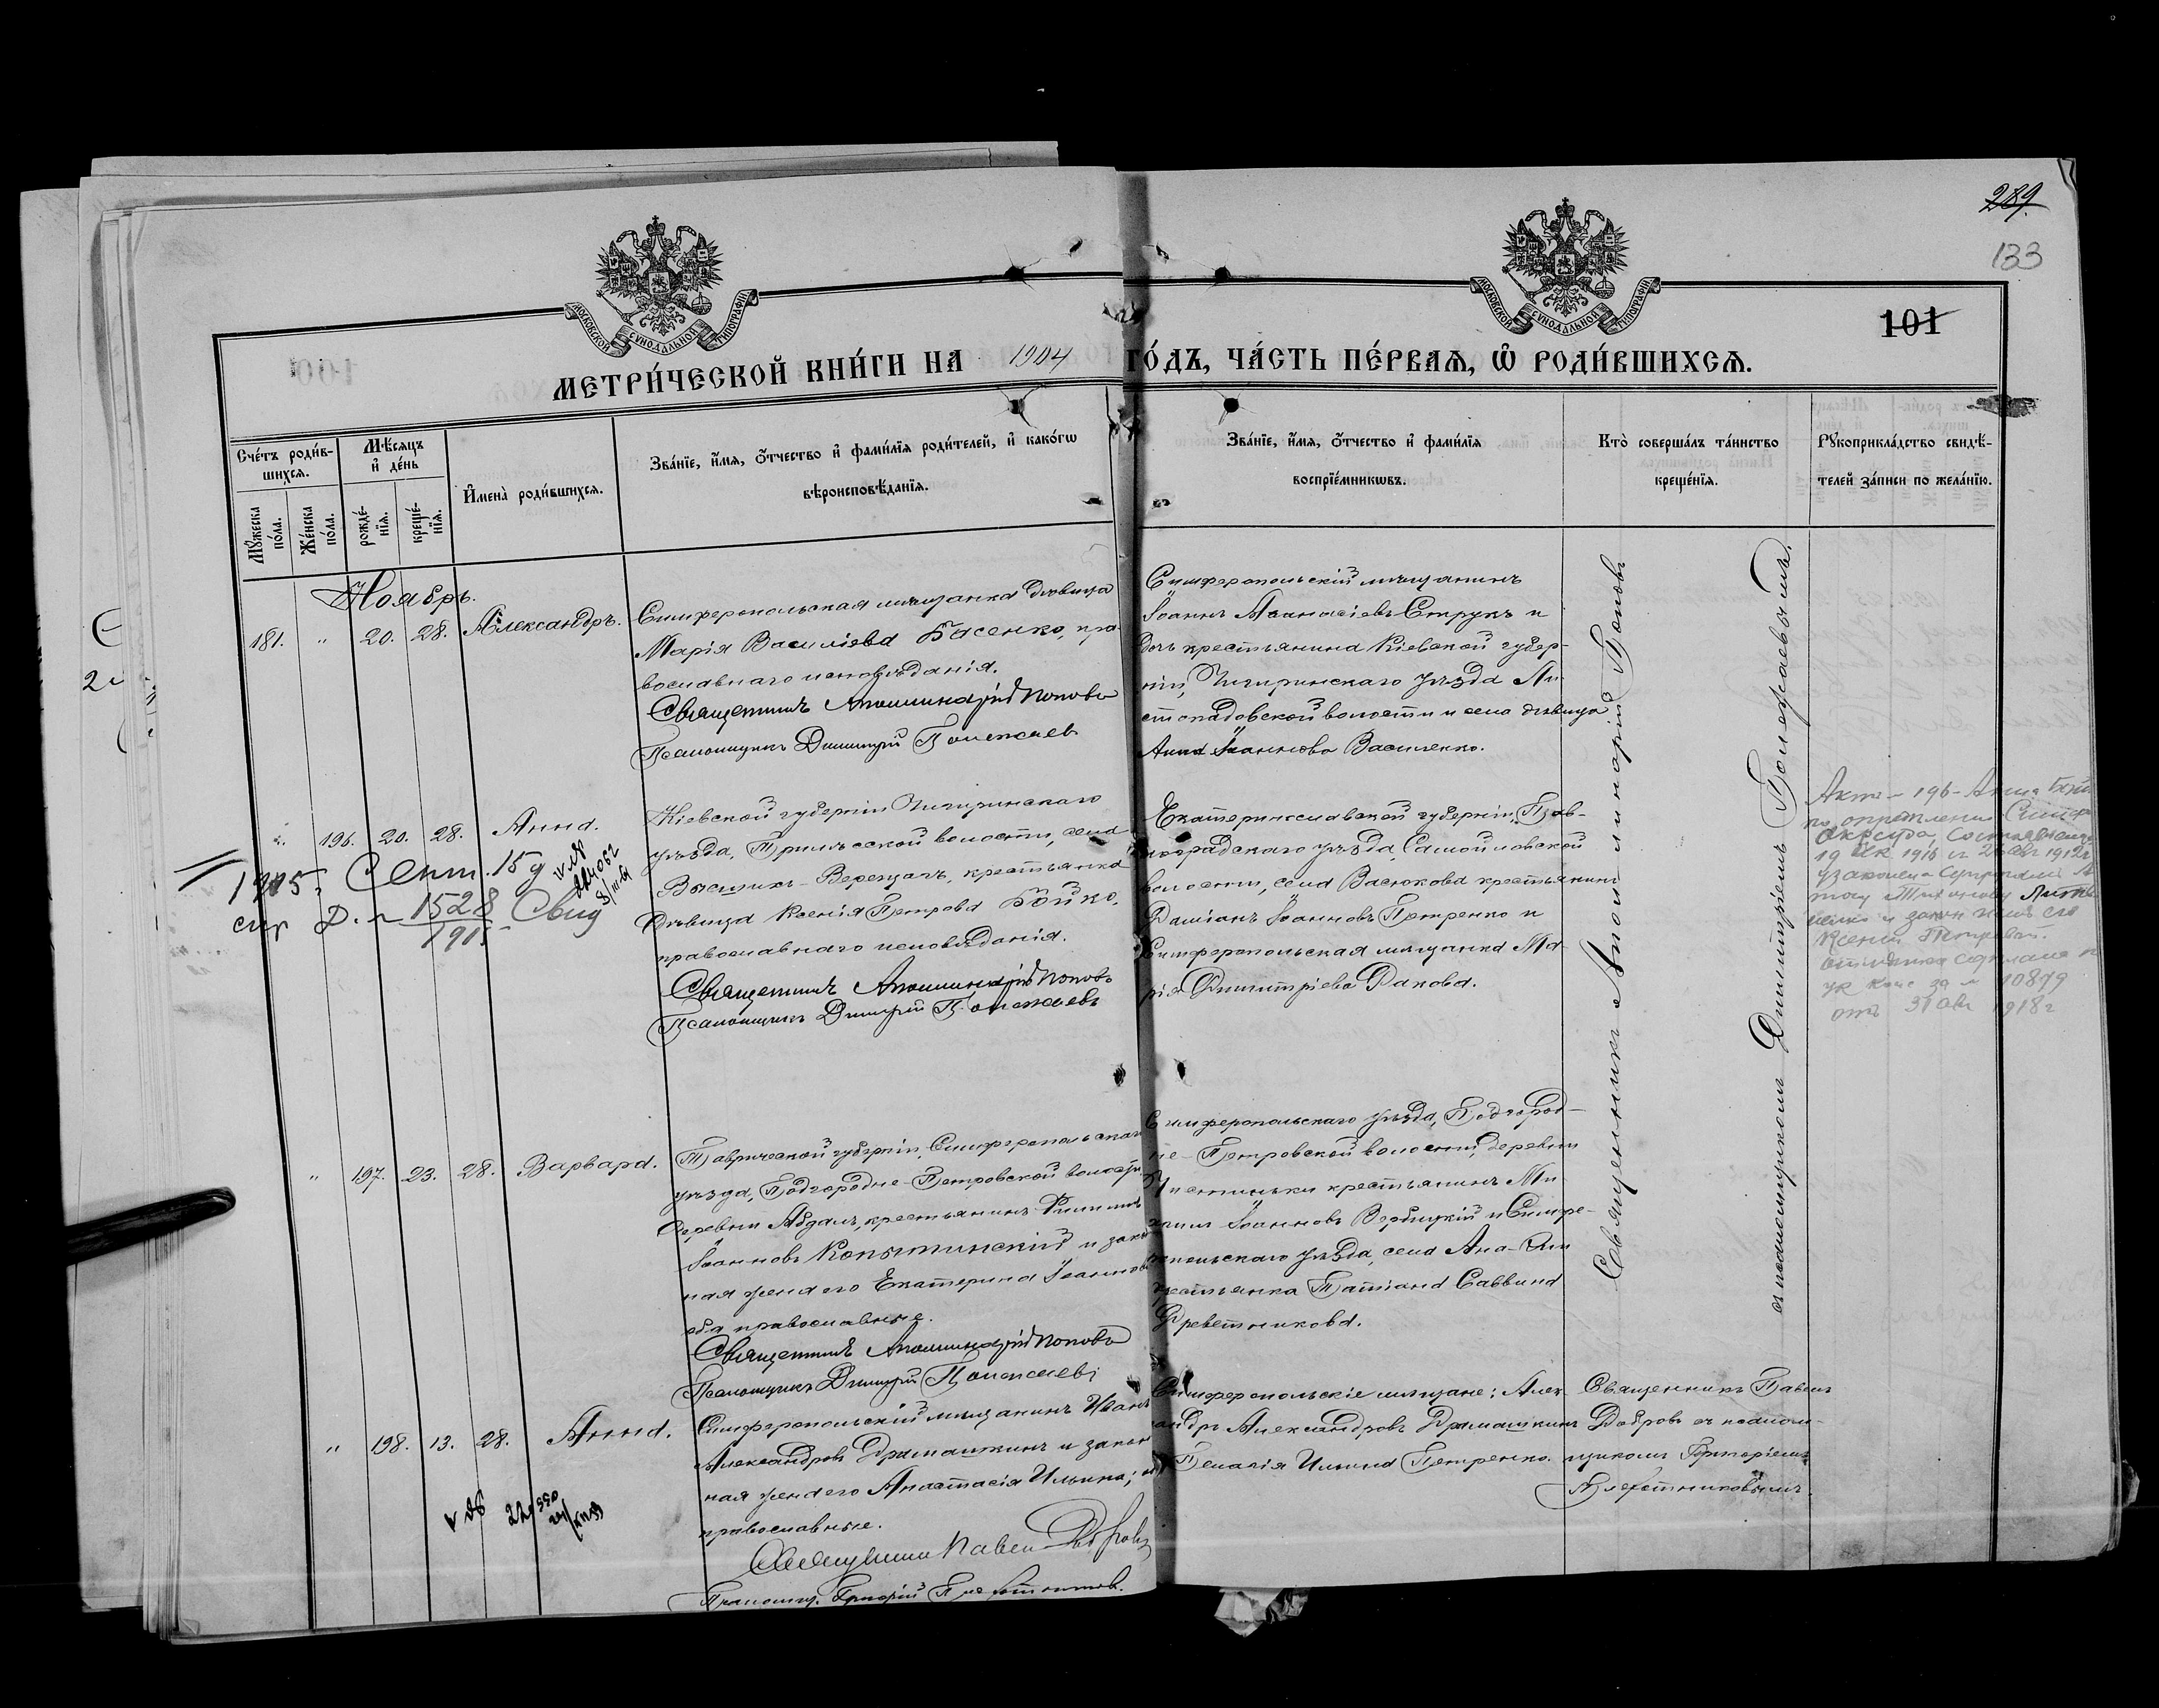 289.
133
101
МОСКОВСКОЙ СѴНОДАЛЬНОЙ ТИПОГРАФІИ
МОСКОВСКОЙ СѴНОДАЛЬНОЙ ТИПОГРАФІИ
МЕТРИ́ЧЕСКОЙ КНИ́ГИ НА 1904 ГО́ДЪ, ЧА́СТЬ ПЕ́РВАѦ, Ѡ҆ РОДИ́ВШИХСѦ.
Сче́тъ роди́в-
шихсѧ.
Мꙋ́жеска по́ла.
Же́нска по́ла.
Мѣ́сѧцъ и҆ де́нь
рожде́-нїѧ.
креще́-нїѧ.
И҆мена̀ роди́вшихсѧ.
Зва́нїе, и҆́мѧ, ѻ҆́тчество и҆ фами́лїѧ роди́телей, и҆ како́гѡ
вѣроисповѣ́данїѧ.
Зва́нїе, и҆́мѧ, ѻ҆́тчество и҆ фами́лїѧ
воспрїе́мникѡвъ.
Кто̀ соверша́лъ та́инство
креще́нїѧ.
Рꙋкоприкла́дство свидѣ́-
телей за́писи по жела́нїю.
Ноябрь.
181. " 20. 28. Александръ.
Симферопольская мѣщанка дѣвица
Марія Василіева Басенко, пра-
вославнаго исповѣданія.
Священникъ Аполлинарій Поповъ
Псаломщикъ Димитрій Полежаевъ
Симферопольскій мѣщанинъ
Іоаннъ Аѳанасіевъ Струкъ и
дочь крестьянина Кіевской губер-
ніи, Чигиринскаго уѣзда Ли-
стопадовской волости и села дѣвица
Анна Іоаннова Василенко.
Священникъ Аполлинарій Поповъ
съ псаломщикомъ Димитріемъ Полежаевымъ.
" 196. 20. 28. Анна.
1915 г. Сент. 15 д
Д. № 1528 Свид
1915
224062
Кіевской губерніи Чигиринскаго
уѣзда, Трилѣсской волости, села
Верещакъ, крестьянка
дѣвица Ксенія Петрова Бойко,
православнаго исповѣданія.
Священникъ Аполлинарій Поповъ
Псаломщикъ Димитрій Полежаевъ
Екатеринославской губерніи, Пав-
лоградскаго уѣзда, Самойловской
волости, села Васюкова крестьянинъ
Даміанъ Іоанновъ Петренко и
Симферопольская мѣщанка Ма-
рія Димитріева Ракова.
Акт № 196 - Анна
по опредѣленію Симфер
Окр суда,
узаконена супругами
Ксеніи Петровой.
за № 10879
отъ 31 авг 1918 г
" 197. 23. 28. Варвара.
Таврической губерніи, Симферопольскаго
уѣзда, Подгородне-Петровской волости
деревни Абдалъ, крестьянинъ Филиппъ
Іоанновъ Копытинскій и закон-
ная жена его Екатерина Іоаннова
оба православные.
Священникъ Аполлинарій Поповъ
Псаломщикъ Димитрій Полежаевъ
Симферопольскаго уѣзда, Подгород-
не-Петровской волости, деревни
крестьянинъ Ми-
хаилъ Іоанновъ Вербицкій и Симфе-
ропольскаго уѣзда, села Ана-Эли
крестьянка Татіана Саввина
" 198. 13. 28. Анна.
Симферопольскій мѣщанинъ Иванъ
Александровъ Драмашкинъ и закон-
ная жена его Анастасія Ильина; оба
православные.
Священникъ Павелъ Добровъ
Псаломщ. Григорій
Симферопольскіе мѣщане: Алек-
сандръ Александровъ Драмашкинъ
и Пелагія Ильина Петренко.
Священникъ Павелъ
Добровъ съ псалом-
щикомъ Григоріемъ